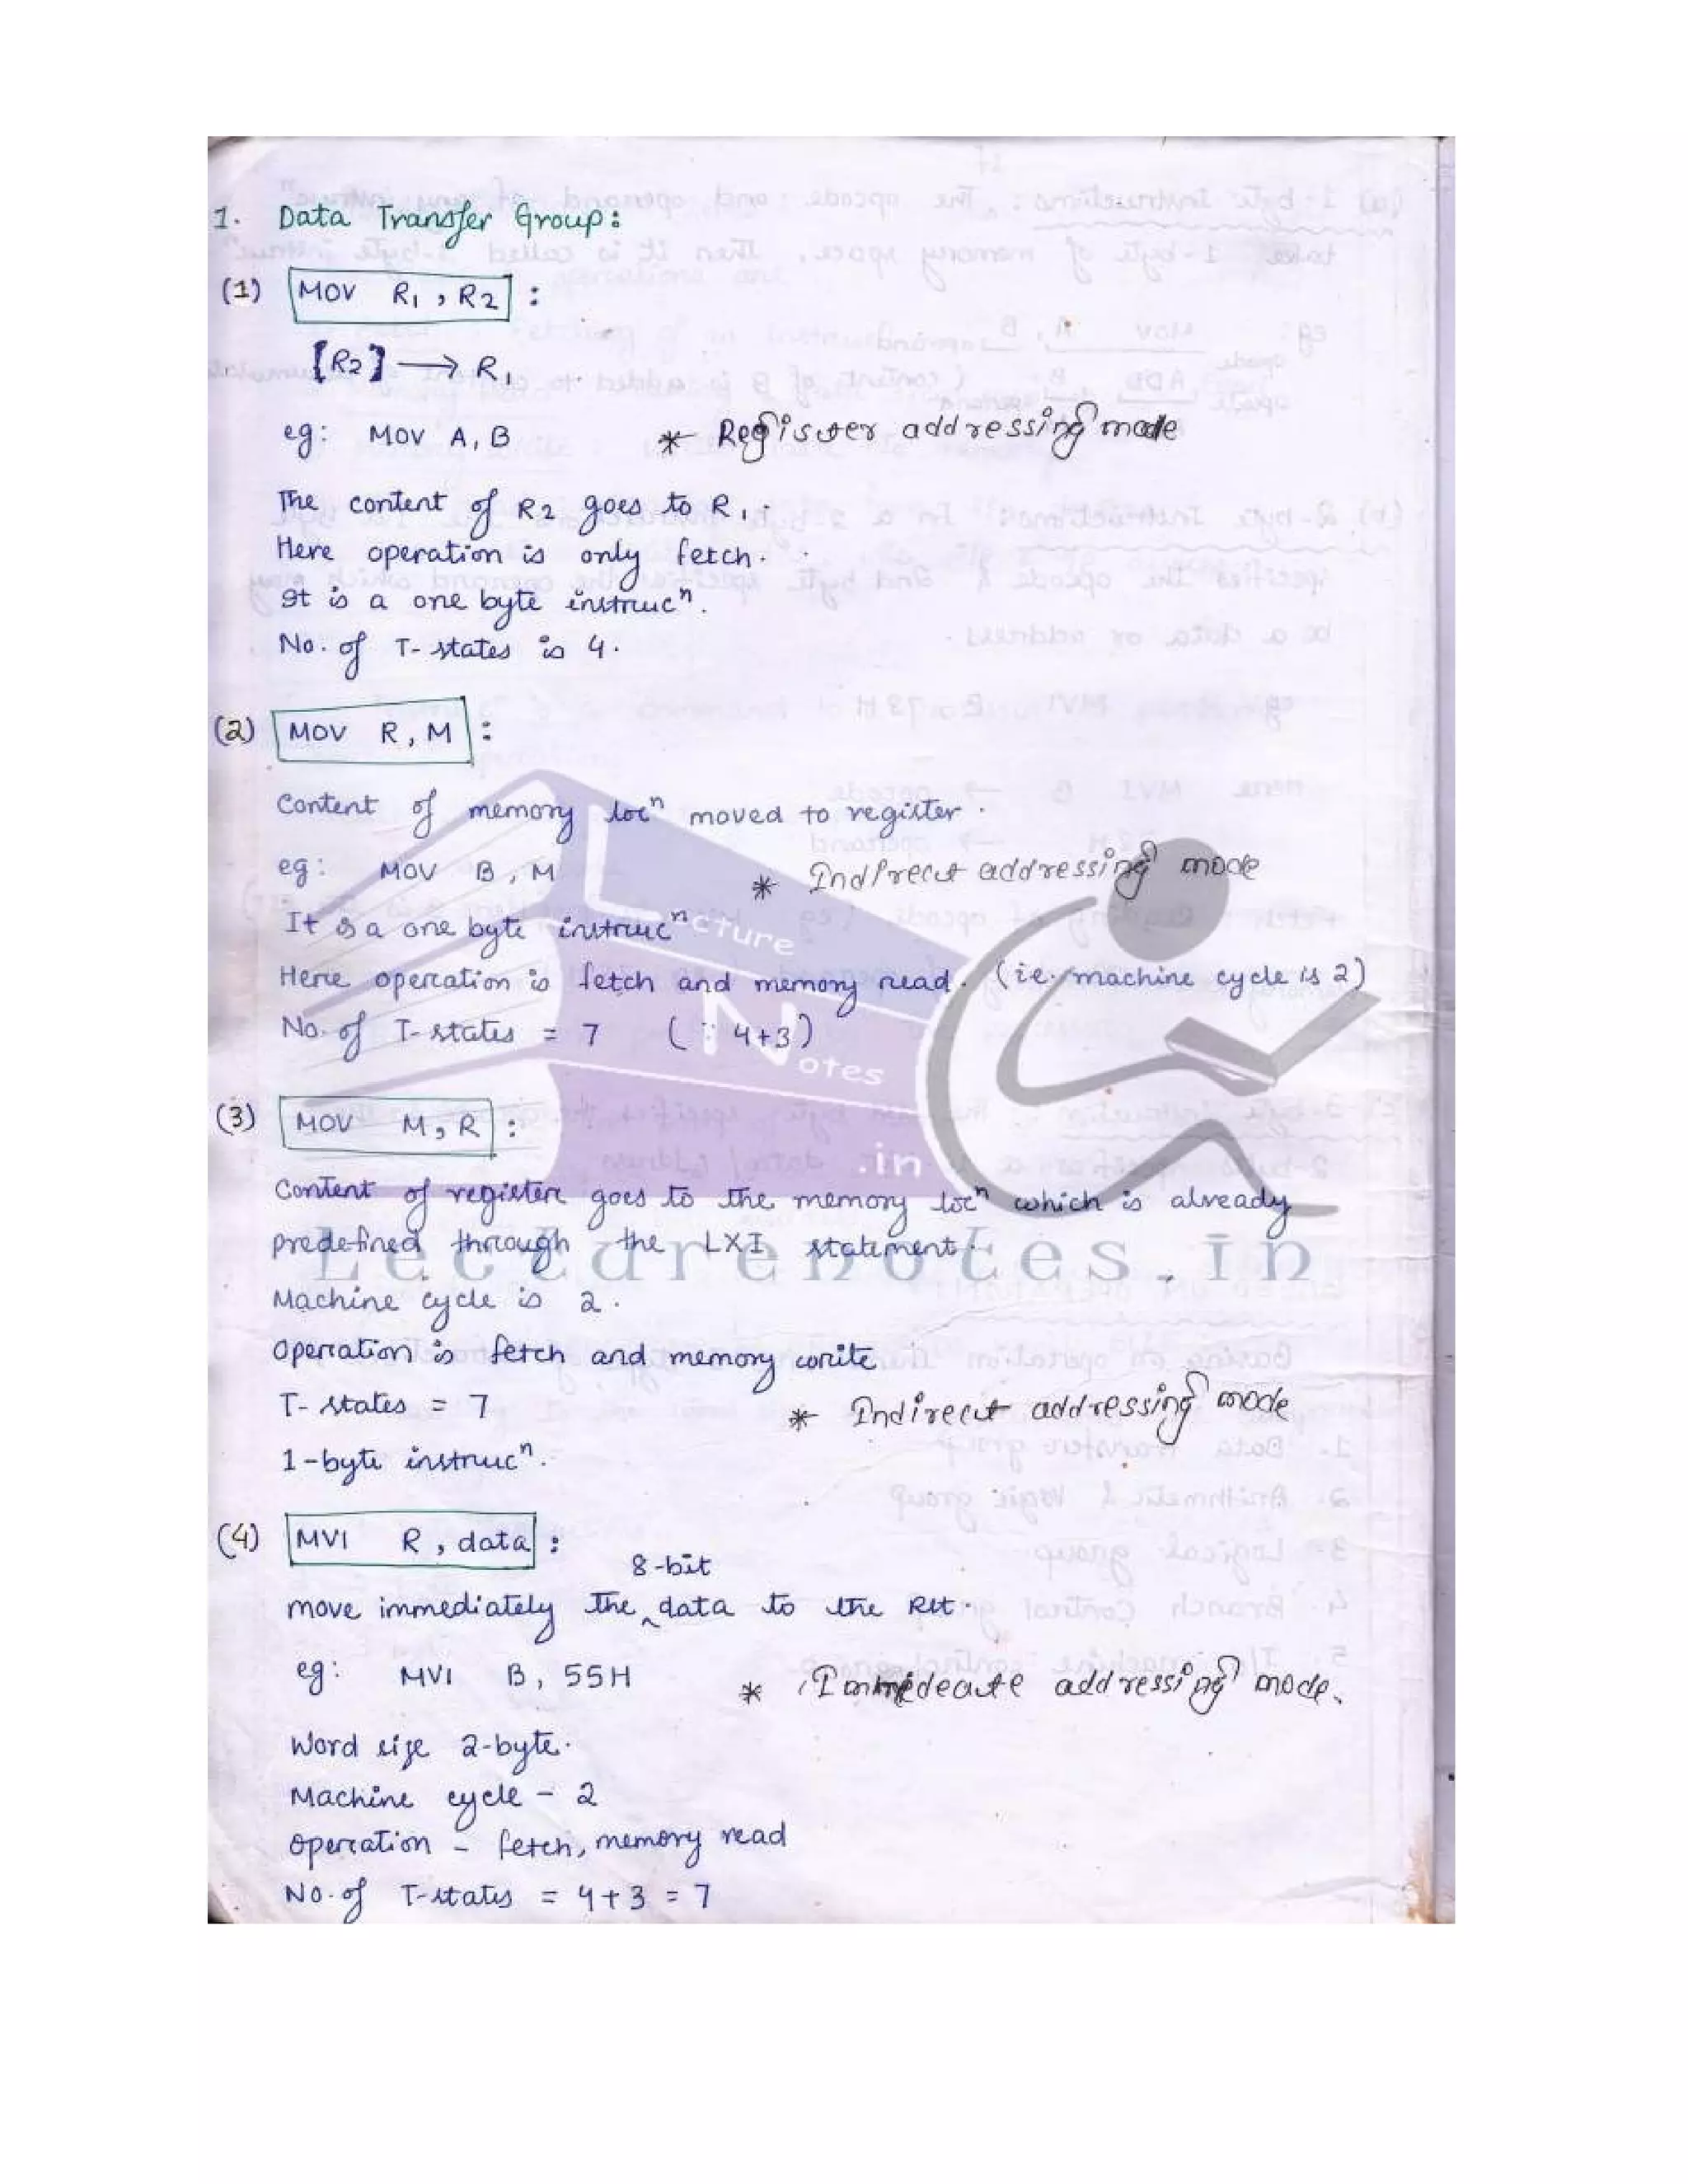 1. Data Transfer Group :
(1) MOV R1 , R2 :
[R2] → R1
eg: MOV A, B * Register addressing mode
The content of R2 goes to R1.
Here operation is only fetch.
It is a one byte instrucⁿ.
No. of T-states is 4.
(2) MOV R, M :
Content of memory locⁿ moved to register.
eg: MOV B, M * Indirect addressing mode
It is a one byte instrucⁿ
Here operation is fetch and memory read. (i.e. machine cycle is 2)
No. of T-states = 7 (∵ 4+3)
(3) MOV M, R :
Content of register goes to the memory locⁿ which is already
predefined through the LXI statement.
Machine cycle is 2.
Operation is fetch and memory write
T-states = 7 * Indirect addressing mode
1-byte instrucⁿ.
(4) MVI R, data :
8-bit
move immediately the ‸ data to the
eg: MVI B, 55H * Immedeate addressing mode.
Word size 2-byte.
Machine cycle - 2
Operation - fetch, memory read
No. of T-states = 4+3 = 7
cture
Notes
.in
Lecturenotes.in